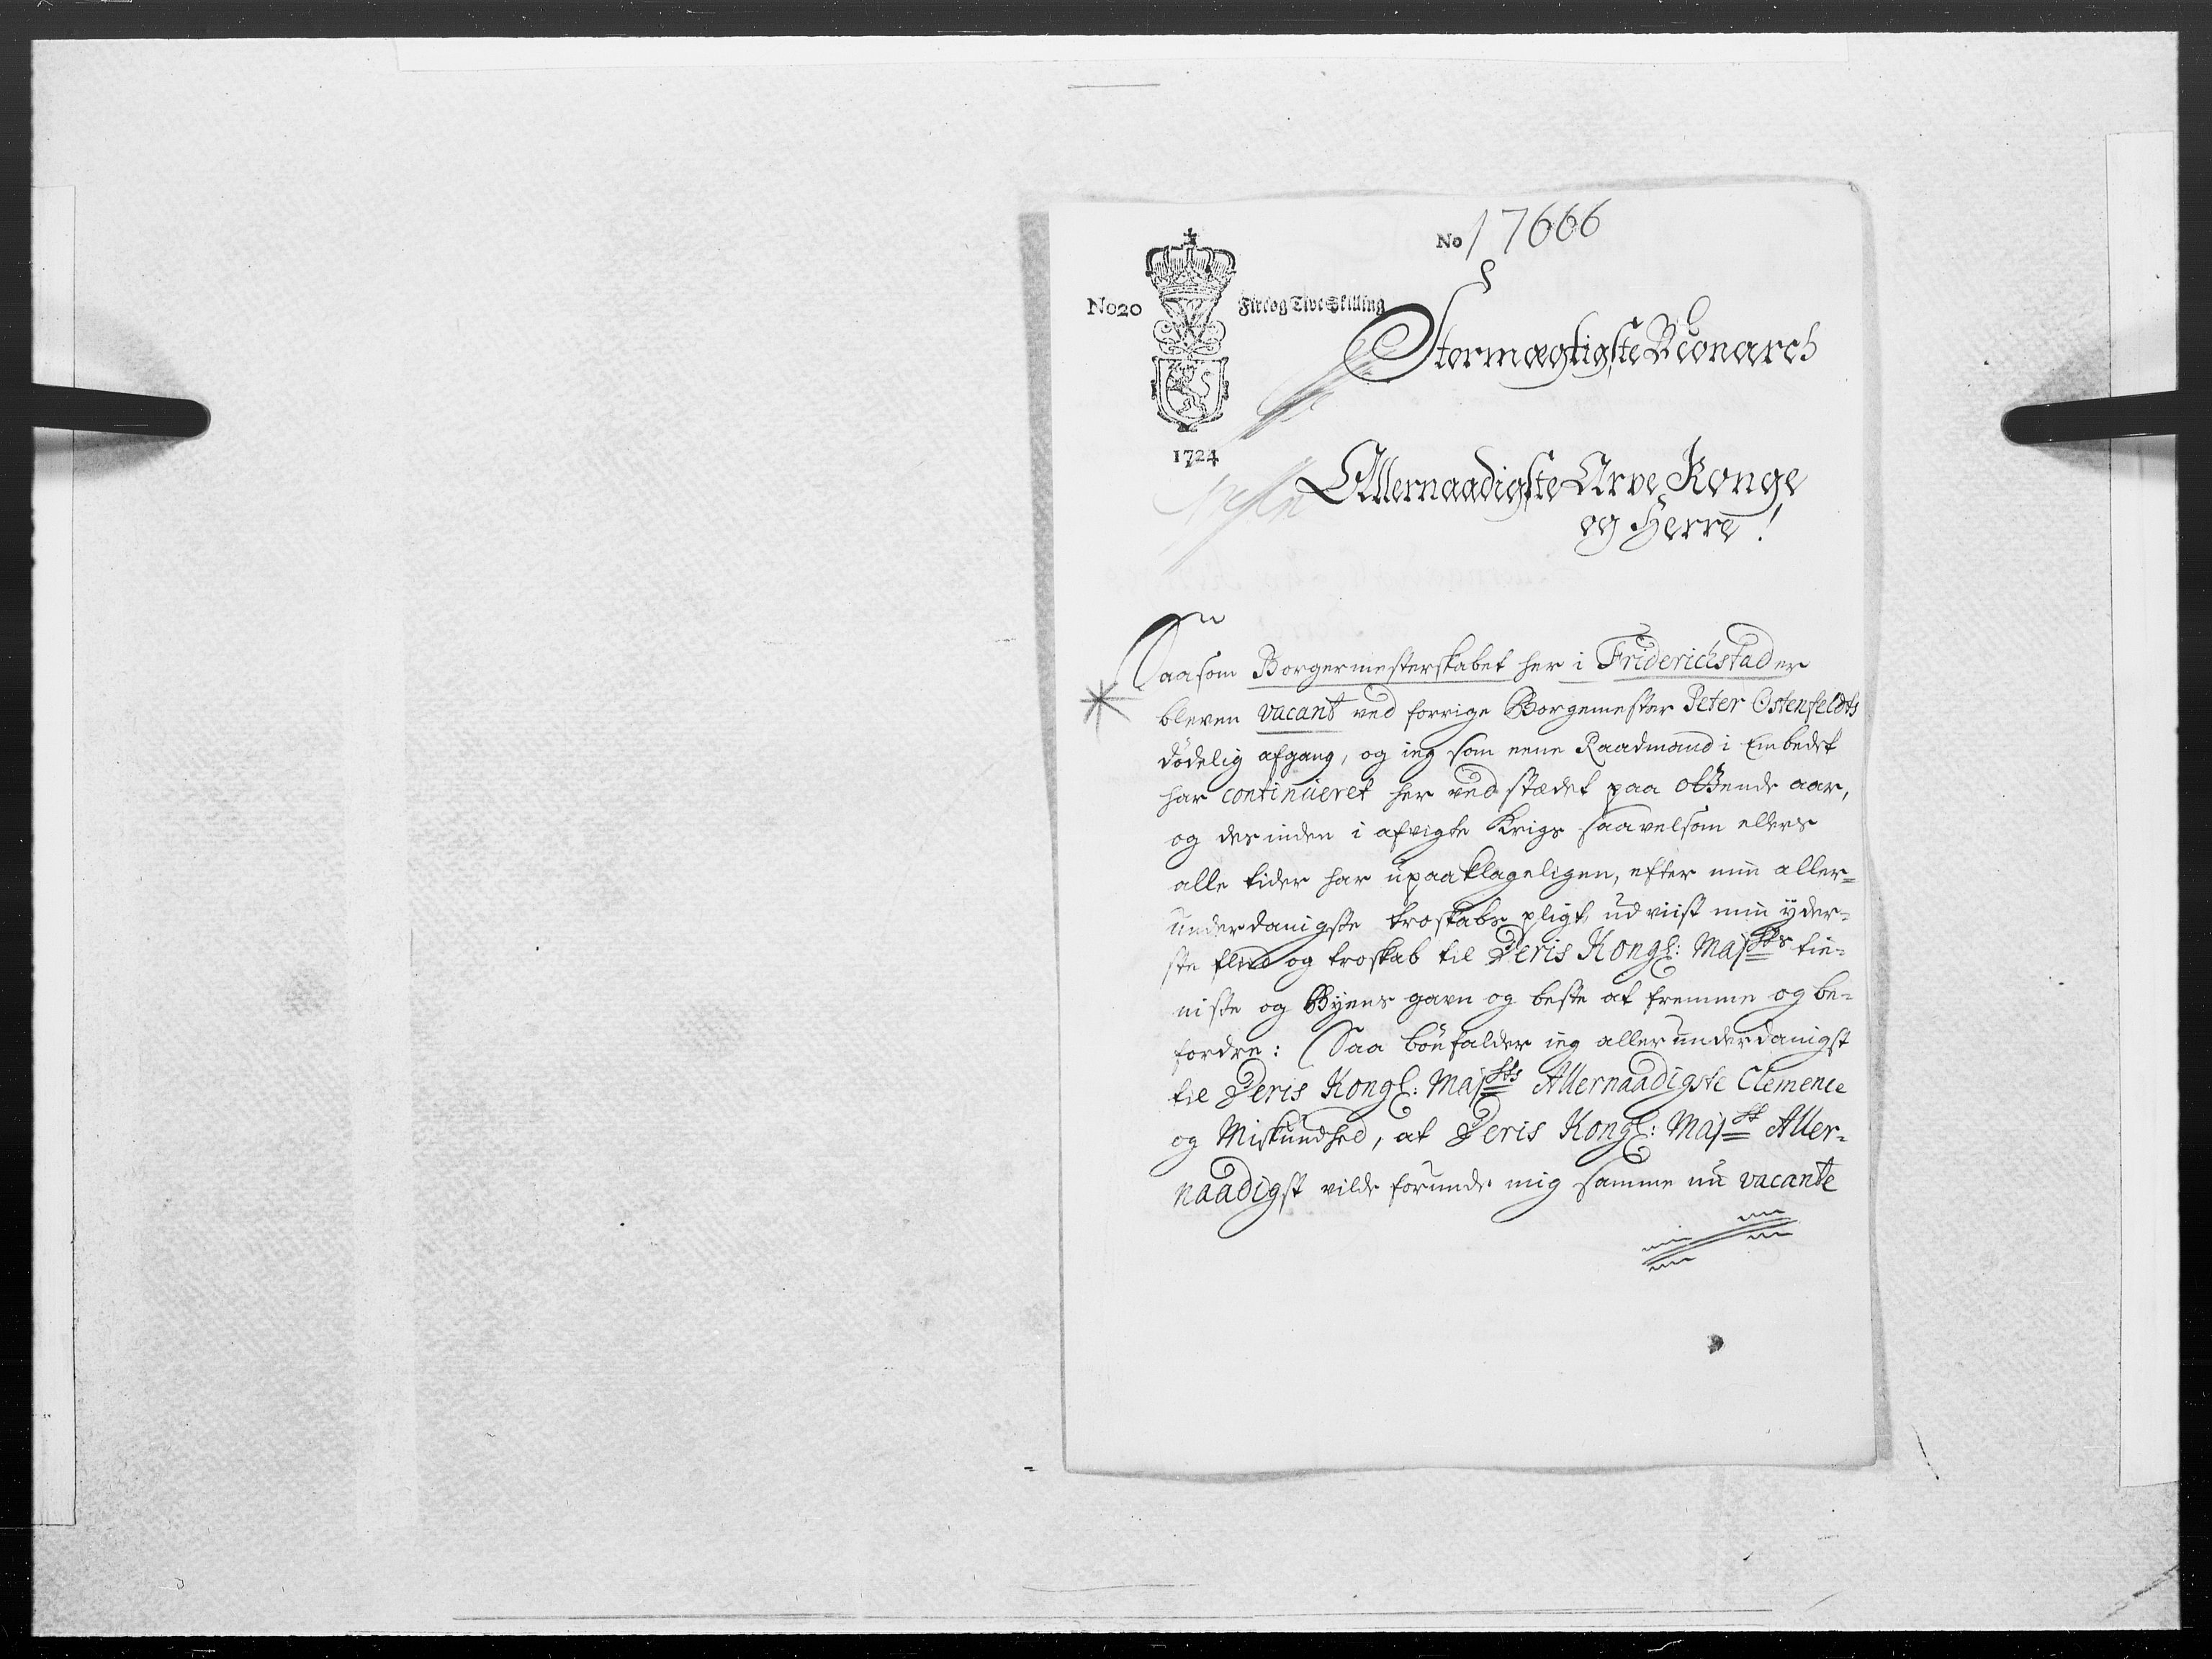 No 17666
No 20 Fire og Tive Skilling
1724
Stormægtigste Monarch
Allernaadigste Arve Konge
og Herre!
Saasom Borgermesterskabet her i Friderichstad er
bleven vacant ved forrige Borgemester Peter Ostenfeldts
dödelig afgang, og ieg som eene Raadmand i Embedet
har continueret her ved stædet paa ottende aar,
og des inden i afvigte Krigs saavelsom ellers
alle tider har upaaklageligen, efter min aller=
underdanigste troskabs pligt udviist min yder=
ste fliid og troskab til Deris Kongl: Majsts tie=
niste og Byens gavn og beste at fremme og be=
fordre: Saa bönfalder ieg allerunderdanigst
til Deris Kongl: Majsts Allernaadigste Clemence
og Miskundhed, at Deris Kongl: Majst Aller=
naadigst vilde forunde mig samme nu vacante